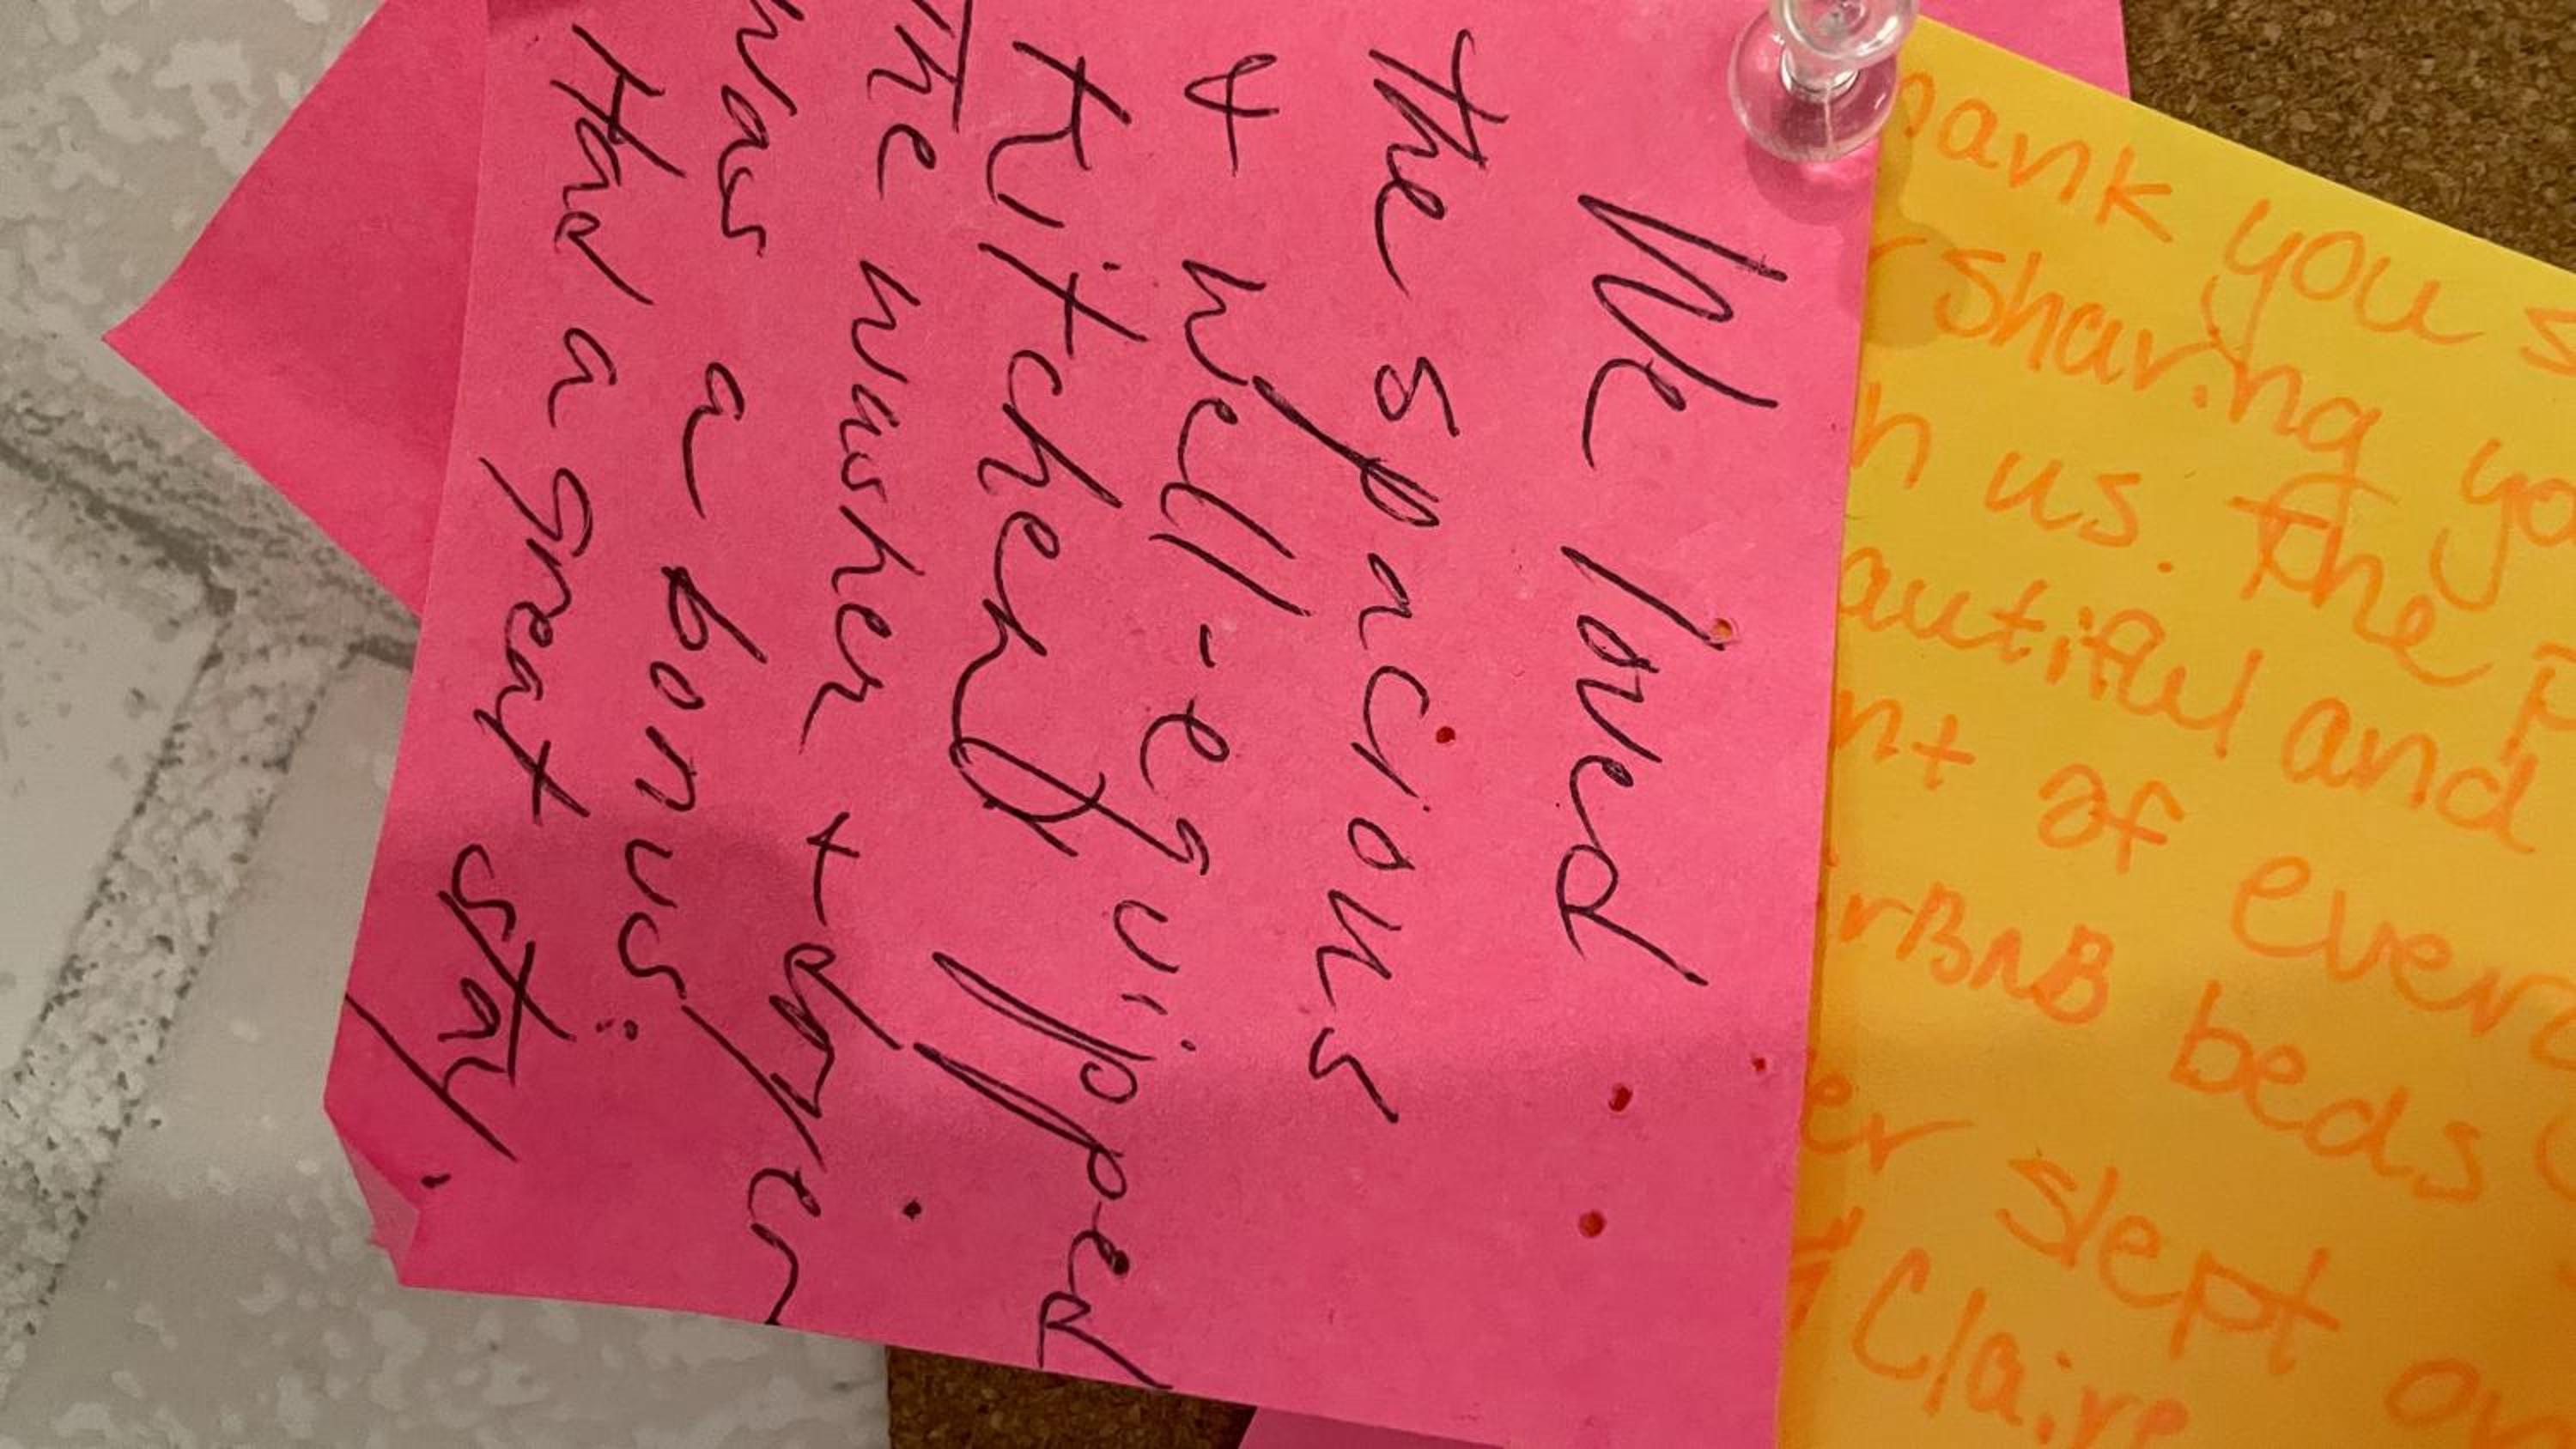 We loved
the spacious
& well-equipped
Kitchen!
The washer + dryer
was a bonus!
Had a great stay.
you
sharing
us. The
and
of
beds
slept
Claire